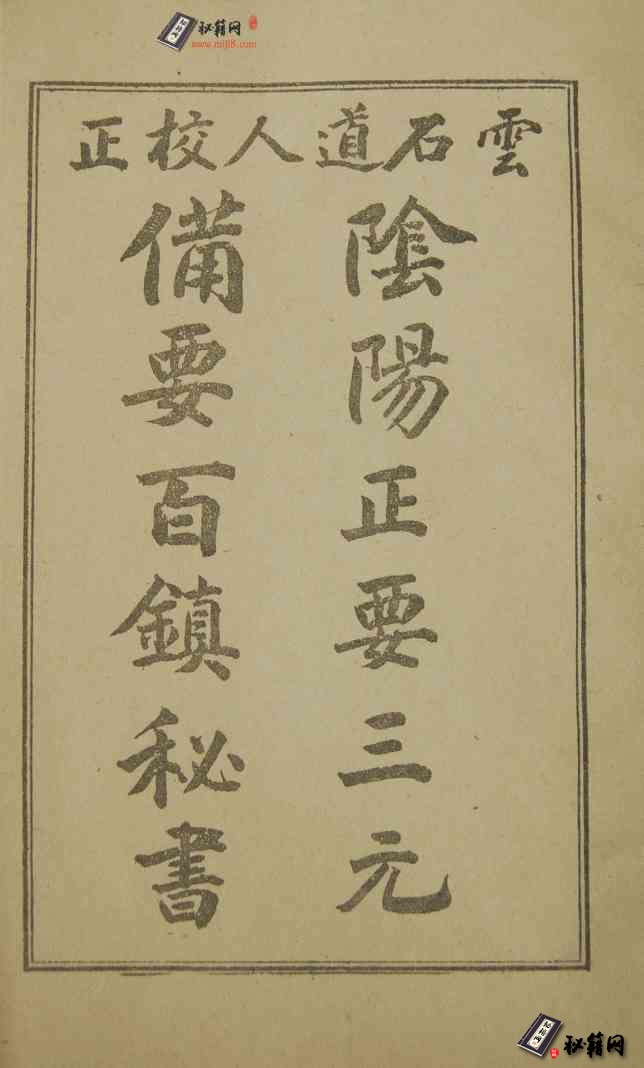 秘籍网
www.miji8.com
雲石道人校正
陰陽正要三元
備要百鎮秘書
秘籍网